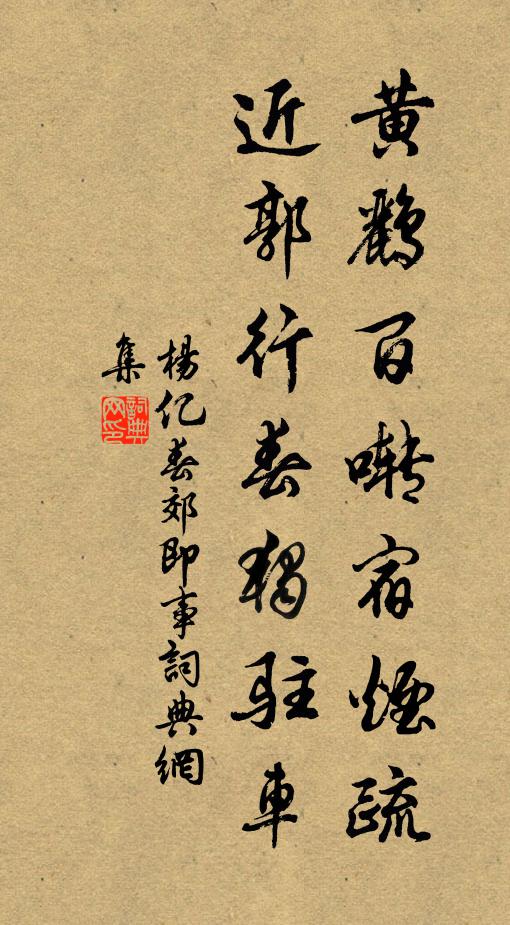 黄鸝百囀宿煙疏
近郭行春獨駐車
楊億春郊即事詞典網
集
詞典
网印